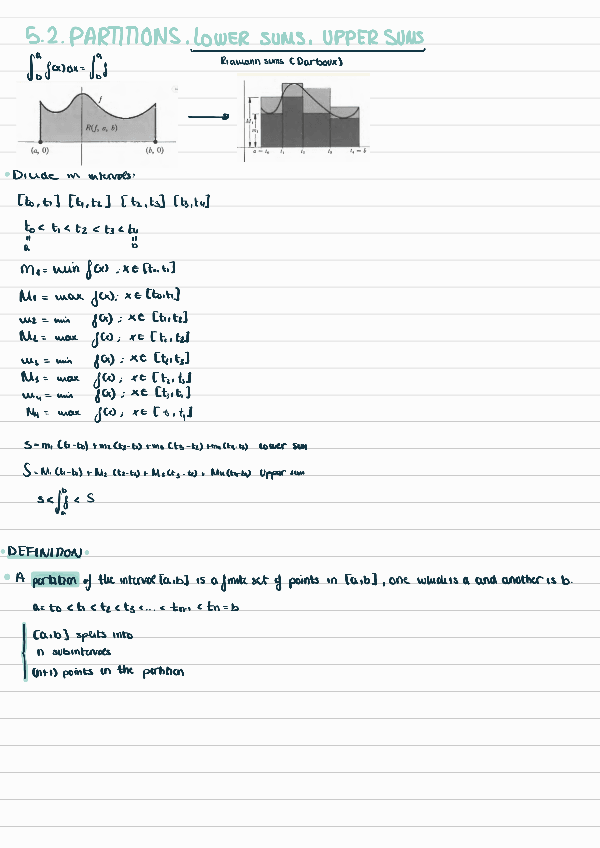 5.2. PARTITIONS. LOWER SUMS. UPPER SUMS
Riamann sums (Darboux)
∫ₐᵇ f(x) dx = ∫ₐᵇ f
f
R(f, a, b)
(a, 0) (b, 0)
a = t₀ t₁ t₂ t₃ t₄ = b
Divide in intervals:
[t₀,t₁] [t₁,t₂] [t₂,t₃] [t₃,t₄]
t₀ < t₁ < t₂ < t₃ < t₄
" "
a b
m₁ = min f(x) ; x ∈ [t₀,t₁]
M₁ = max f(x); x ∈ [t₀,t₁]
m₂ = min f(x) ; x ∈ [t₁,t₂]
M₂ = max f(x) ; x ∈ [t₁,t₂]
m₃ = min f(x) ; x ∈ [t₂,t₃]
M₃ = max f(x) ; x ∈ [t₂,t₃]
m₄ = min f(x) ; x ∈
M₄ = max f(x) ; x ∈
s = m₁ (t₁-t₀) + m₂ (t₂-t₁) + m₃ (t₃-t₂) + m₄ (t₄-t₃) Lower sum
S = M₁ (t₁-t₀) + M₂ (t₂-t₁) + M₃ (t₃-t₂) + M₄ (t₄-t₃) Upper sum
s < ∫ₐᵇ f < S
DEFINITION
A partition of the interval [a,b] is a finite set of points in [a,b], one which is a and another is b.
a = t₀ < t₁ < t₂ < t₃ < ... < tₙ₋₁ < tₙ = b
[a,b] splits into
n subintervals
(n+1) points in the partition